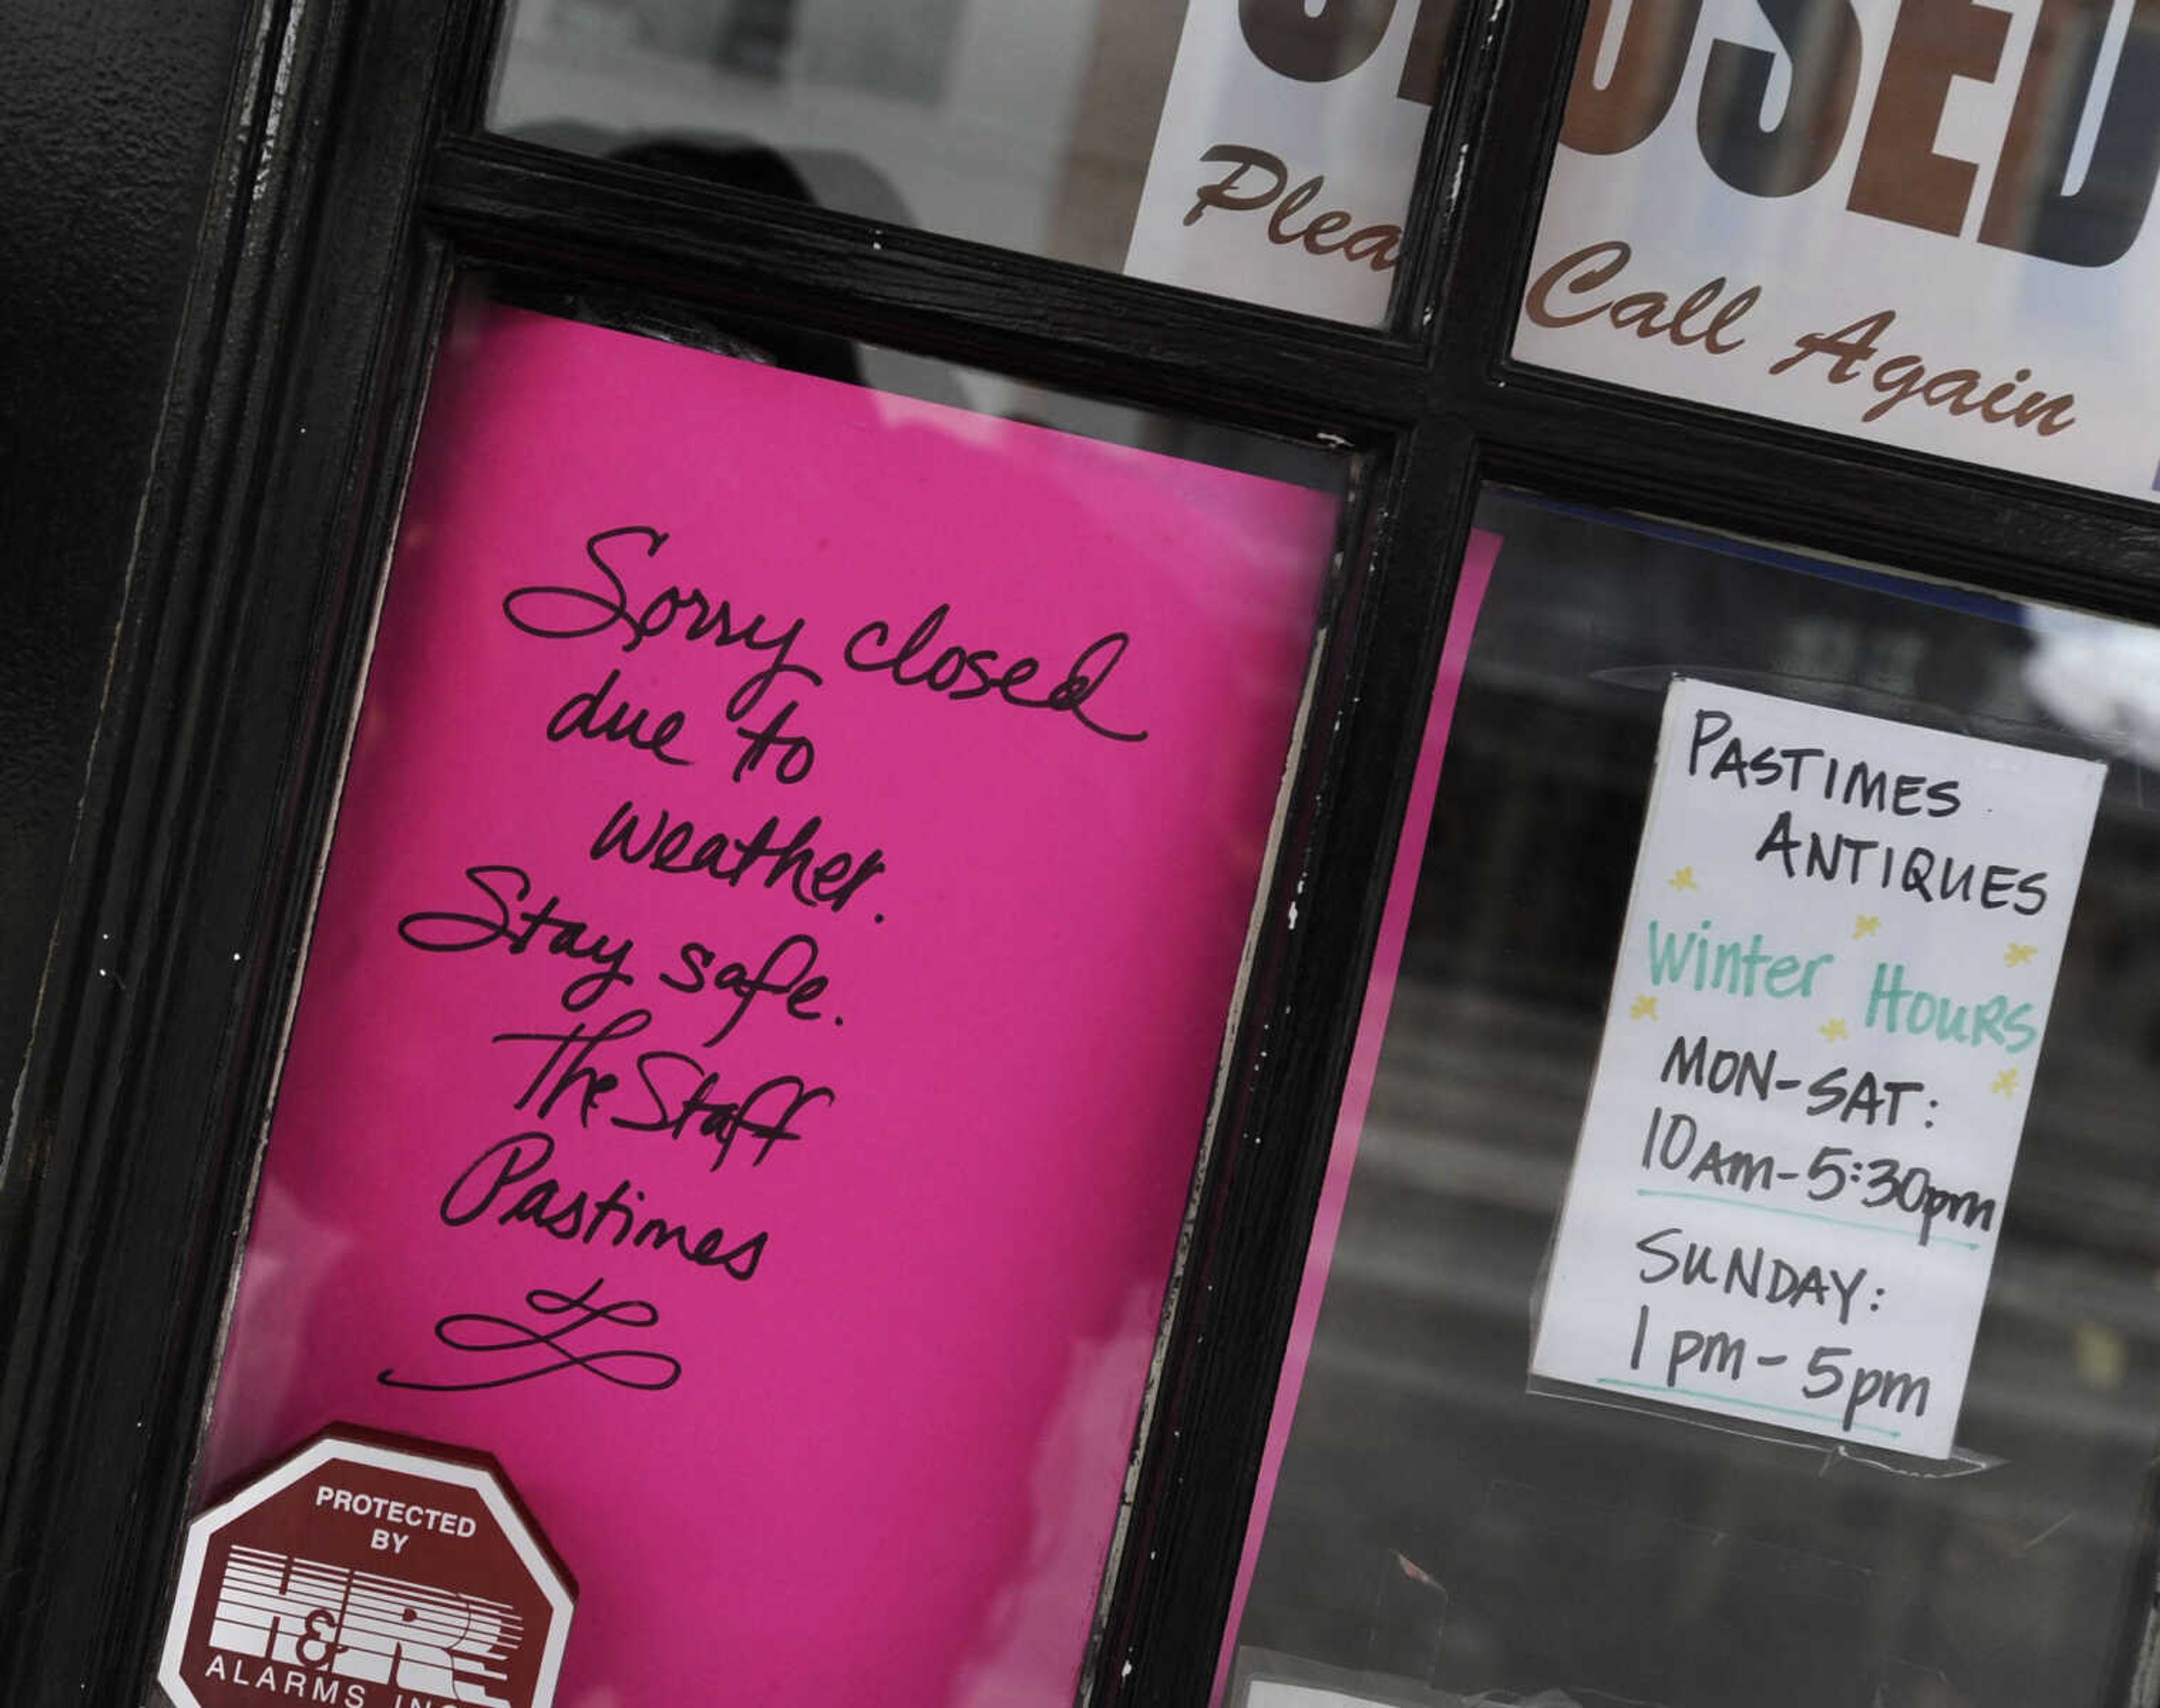 CLOSED
Plea
Call Again
Sorry closed
due to
weather.
Stay safe.
The Staff
Pastimes
PASTIMES
ANTIQUES
Winter Hours
MON-SAT:
10AM-5:30pm
SUNDAY:
1pm-5pm
PROTECTED
BY
H&R
ALARMS INC